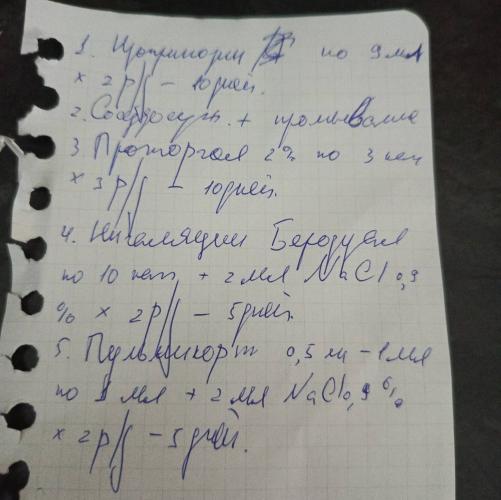 1. Цоприпорин по 9 мл
x 2 р/д – 10 дней.
2. Сосудосуж. + промывание
3. Проторгол 2% по 3 кап
x 3 р/д – 10 дней.
4. Ингаляции Беродуал
по 10 кап + 2 мл NaCl 0,9
% x 2 р/д – 5 дней.
5. Пульмикорт 0,5 мг – 1 мл
по 1 мл + 2 мл NaCl 0,9 %
x 2 р/д – 5 дней.